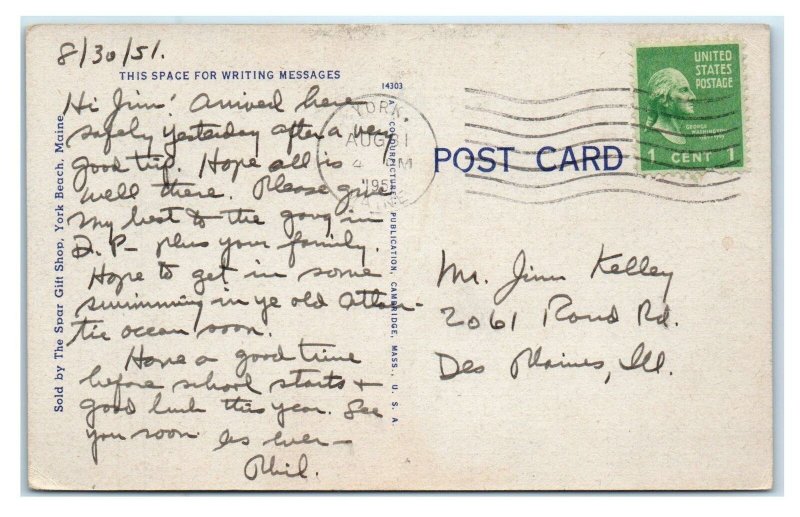 8/30/51.
THIS SPACE FOR WRITING MESSAGES
Hi Jim! Arrived here
safely yesterday after a very
good trip. Hope all is
well there. Please give
my best to the gang in
D.P- plus your family.
Hope to get in some
swimming in ye old Atlan-
tic ocean soon.
Have a good time
before school starts +
good luck this year. See
you soon as ever-
Phil.
Sold by The Spar Gift Shop, York Beach, Maine
14303
A COLOURPICTURE PUBLICATION, CAMBRIDGE, MASS., U. S. A.
YORK,
AUG 31
4 PM
195
MAINE
POST CARD
UNITED
STATES
POSTAGE
GEORGE
WASHINGTON
1 CENT 1
Mr. Jim Kelley
2061 Rd.
Des Plaines, Ill.